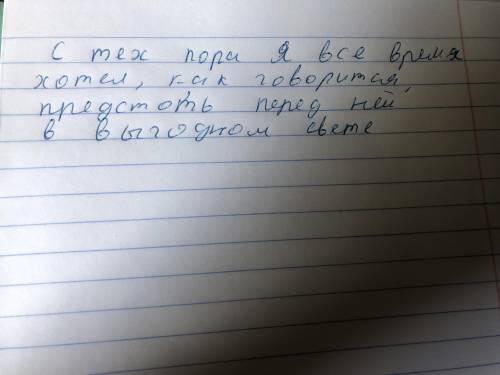 С тех пори я все время
хотел, как говорится,
предстоть перед ней
в выгодном свете